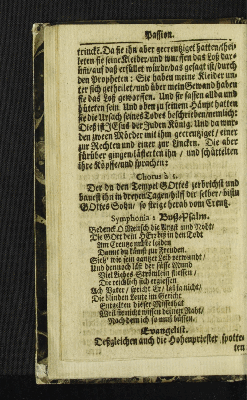 Passion.
trincke. Da sie ihn aber gecreutziget hatten/ thei-
leten sie seine Kleider/ und wurffen das Loß dar-
umb/ auf daß erfüllet würde/ das gesagt ist/ durch
den Propheten: Sie haben meine Kleider un-
ter sich getheilet/ und über mein Gewand haben
sie das Loß geworffen. Und sie sassen allda und
hüteten sein. Und oben zu seinem Häupt hatten
sie die Ursach seines Todes beschrieben/ nemlich:
Dieß ist JEsus der Juden König. Und da wur-
den zween Mörder mit ihm gecreutziget/ einer
zur Rechten und einer zur Lincken. Die aber
fürüber gingen/ lästerten ihn/ und schüttelten
ihre Köpffe/ und sprachen:
Chorus à 5.
Der du den Tempel GOttes zerbrichst und
bauest ihn in dreyen Tagen/ hilff dir selber/ bistu
GOttes Sohn/ so steige herab vom Creutz.
Symphonia 2 Buß-Psalm.
Gedenck O Mensch die Angst und Noht/
Die GOtt dem HErrn in den Todt
Am Creutze muste leiden
Damit du könst zur Freuden.
Sieh/ wie sein gantzer Leib verwundt/
Und dennoch läst der süsse Mund
Viel liebes Ströhmlein fliessen/
Die reichlich sich ergiessen
Ach Vater/ spricht Er/ laß ja nicht/
Die blinden Leute im Gericht
Entgelten dieser Missethat
Weil sie nicht wissen deinen Raht/
Nach dem ich ja muß büssen.
Evangelist.
Deßgleichen auch die Hohenpriester spotte-
ten